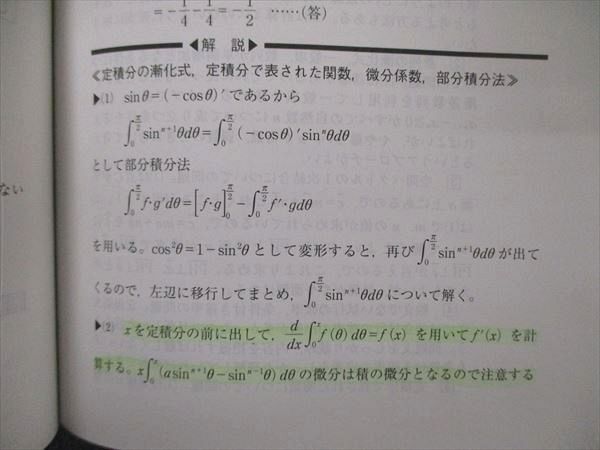 = -1/4 - 1/4 = -1/2 ……(答)
◀解 説▶
≪定積分の漸化式，定積分で表された関数，微分係数，部分積分法≫
▶(1) sinθ=(−cosθ)′であるから
∫₀^{π/2} sin^{n+1}θdθ=∫₀^{π/2} (−cosθ)′sin^nθdθ
として部分積分法
∫₀^{π/2} f・g′dθ=[f・g]₀^{π/2}−∫₀^{π/2} f′・gdθ
を用いる。cos²θ=1−sin²θとして変形すると，再び∫₀^{π/2} sin^{n+1}θdθが出て
くるので，左辺に移行してまとめ，∫₀^{π/2} sin^{n+1}θdθについて解く。
▶(2) xを定積分の前に出して，d/dx∫₀^x f(θ)dθ=f(x)を用いてf′(x)を計
算する。x∫₀^x (asin^{n+1}θ−sin^{n−1}θ)dθの微分は積の微分となるので注意する
ない